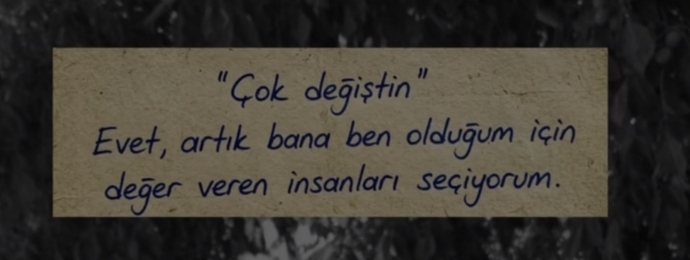 "Çok değiştin"
Evet, artık bana ben olduğum için
değer veren insanları seçiyorum.